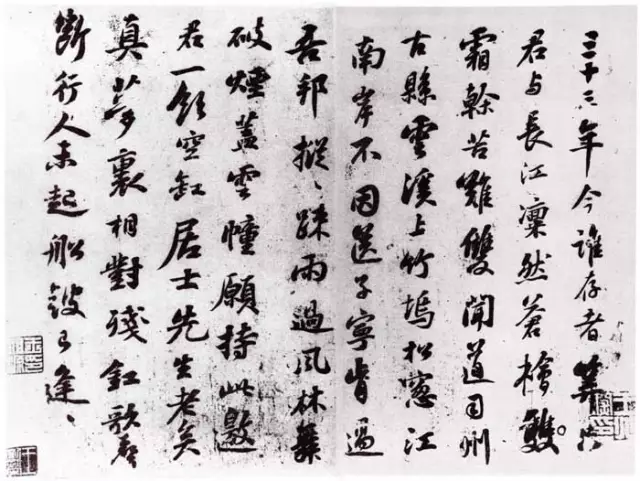 三十三年今誰存者算只
君与長江凛然蒼檜雙
霜幹苦難雙聞道司州
古縣雲溪上竹塢松窓江
南岸不因送子寧肯過
吾邦摐〻疎雨過風林舞
破煙蓋雲幢願持此邀
君一飲空缸居士先生老矣
真夢裏相對殘釭歌聲
斷行人未起船鼓已逢〻